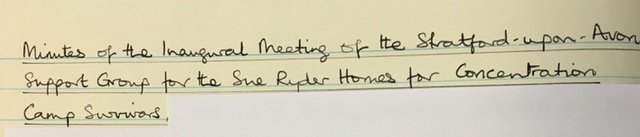 Minutes of the Inaugural Meeting of the Stratford-upon-Avon
Support Group for the Sue Ryder Homes for Concentration
Camp Survivors.